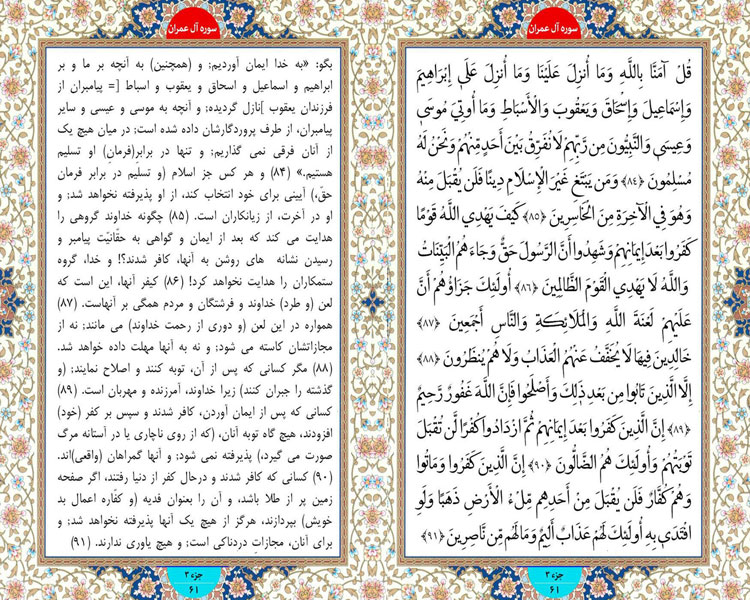 سوره آل عمران
قُلْ آمَنَّا بِاللَّهِ وَمَا أُنزِلَ عَلَيْنَا وَمَا أُنزِلَ عَلَى إِبْرَاهِيمَ
وَإِسْمَاعِيلَ وَإِسْحَاقَ وَيَعْقُوبَ وَالْأَسْبَاطِ وَمَا أُوتِيَ مُوسَى
وَعِيسَى وَالنَّبِيُّونَ مِن رَّبِّهِمْ لَا نُفَرِّقُ بَيْنَ أَحَدٍ مِّنْهُمْ وَنَحْنُ لَهُ
مُسْلِمُونَ ﴿۸۴﴾ وَمَن يَبْتَغِ غَيْرَ الْإِسْلَامِ دِينًا فَلَن يُقْبَلَ مِنْهُ
وَهُوَ فِي الْآخِرَةِ مِنَ الْخَاسِرِينَ ﴿۸۵﴾ كَيْفَ يَهْدِي اللَّهُ قَوْمًا
كَفَرُوا بَعْدَ إِيمَانِهِمْ وَشَهِدُوا أَنَّ الرَّسُولَ حَقٌّ وَجَاءَهُمُ الْبَيِّنَاتُ
وَاللَّهُ لَا يَهْدِي الْقَوْمَ الظَّالِمِينَ ﴿۸۶﴾ أُولَئِكَ جَزَاؤُهُمْ أَنَّ
عَلَيْهِمْ لَعْنَةَ اللَّهِ وَالْمَلَائِكَةِ وَالنَّاسِ أَجْمَعِينَ ﴿۸۷﴾
خَالِدِينَ فِيهَا لَا يُخَفَّفُ عَنْهُمُ الْعَذَابُ وَلَا هُمْ يُنظَرُونَ ﴿۸۸﴾
إِلَّا الَّذِينَ تَابُوا مِن بَعْدِ ذَلِكَ وَأَصْلَحُوا فَإِنَّ اللَّهَ غَفُورٌ رَّحِيمٌ
﴿۸۹﴾ إِنَّ الَّذِينَ كَفَرُوا بَعْدَ إِيمَانِهِمْ ثُمَّ ازْدَادُوا كُفْرًا لَّن تُقْبَلَ
تَوْبَتُهُمْ وَأُولَئِكَ هُمُ الضَّالُّونَ ﴿۹۰﴾ إِنَّ الَّذِينَ كَفَرُوا وَمَاتُوا
وَهُمْ كُفَّارٌ فَلَن يُقْبَلَ مِنْ أَحَدِهِم مِّلْءُ الْأَرْضِ ذَهَبًا وَلَوِ
افْتَدَى بِهِ أُولَئِكَ لَهُمْ عَذَابٌ أَلِيمٌ وَمَا لَهُم مِّن نَّاصِرِينَ ﴿۹۱﴾
جزء ۳
۶۱
سوره آل عمران
بگو: «به خدا ایمان آوردیم; و (همچنین) به آنچه بر ما و بر
ابراهیم و اسماعیل و اسحاق و یعقوب و اسباط [= پیامبران از
فرزندان یعقوب ]نازل گردیده; و آنچه به موسی و عیسی و سایر
پیامبران، از طرف پروردگارشان داده شده است; در میان هیچ یک
از آنان فرقی نمی گذاریم; و تنها در برابرِ(فرمانِ) او تسلیم
هستیم.» (۸۴) و هر کس جز اسلام (و تسلیم در برابر فرمان
حقّ،) آیینی برای خود انتخاب کند، از او پذیرفته نخواهد شد; و
او در آخرت، از زیانکاران است. (۸۵) چگونه خداوند گروهی را
هدایت می کند که بعد از ایمان و گواهی به حقّانیّت پیامبر و
رسیدن نشانه های روشن به آنها، کافر شدند؟! و خدا، گروه
ستمکاران را هدایت نخواهد کرد! (۸۶) کیفر آنها، این است که
لعن (و طرد) خداوند و فرشتگان و مردم همگی بر آنهاست. (۸۷)
همواره در این لعن (و دوری از رحمت خداوند) می مانند; نه از
مجازاتشان کاسته می شود; و نه به آنها مهلت داده خواهد شد.
(۸۸) مگر کسانی که پس از آن، توبه کنند و اصلاح نمایند; (و
گذشته را جبران کنند) زیرا خداوند، آمرزنده و مهربان است. (۸۹)
کسانی که پس از ایمان آوردن، کافر شدند و سپس بر کفر (خود)
افزودند، هیچ گاه توبه آنان، (که از روی ناچاری یا در آستانه مرگ
صورت می گیرد،) پذیرفته نمی شود; و آنها گمراهان (واقعی)اند.
(۹۰) کسانی که کافر شدند و درحال کفر از دنیا رفتند، اگر صفحه
زمین پر از طلا باشد، و آن را بعنوان فدیه (و کفّاره اعمال بد
خویش) بپردازند، هرگز از هیچ یک آنها پذیرفته نخواهد شد; و
برای آنان، مجازات دردناکی است; و هیچ یاوری ندارند. (۹۱)
جزء ۳
۶۱